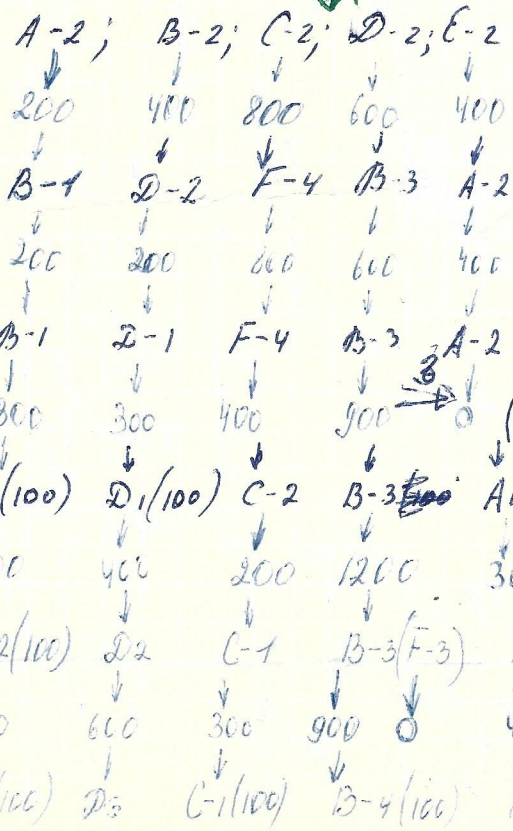 A-2; B-2; C-2; D-2; E-2
200 400 800 600 400
B-1 D-2 F-4 B-3 A-2
200 200 600 400
B-1 D-1 F-4 B-3 A-2
3
300 300 400 900 0 (
(100) D1(100) C-2 B-3 A
0 400 200 1200 30
2(100) D2 C-1 B-3(F-3)
0 600 300 900 0
100) D3 C-1(100) B-4(100)